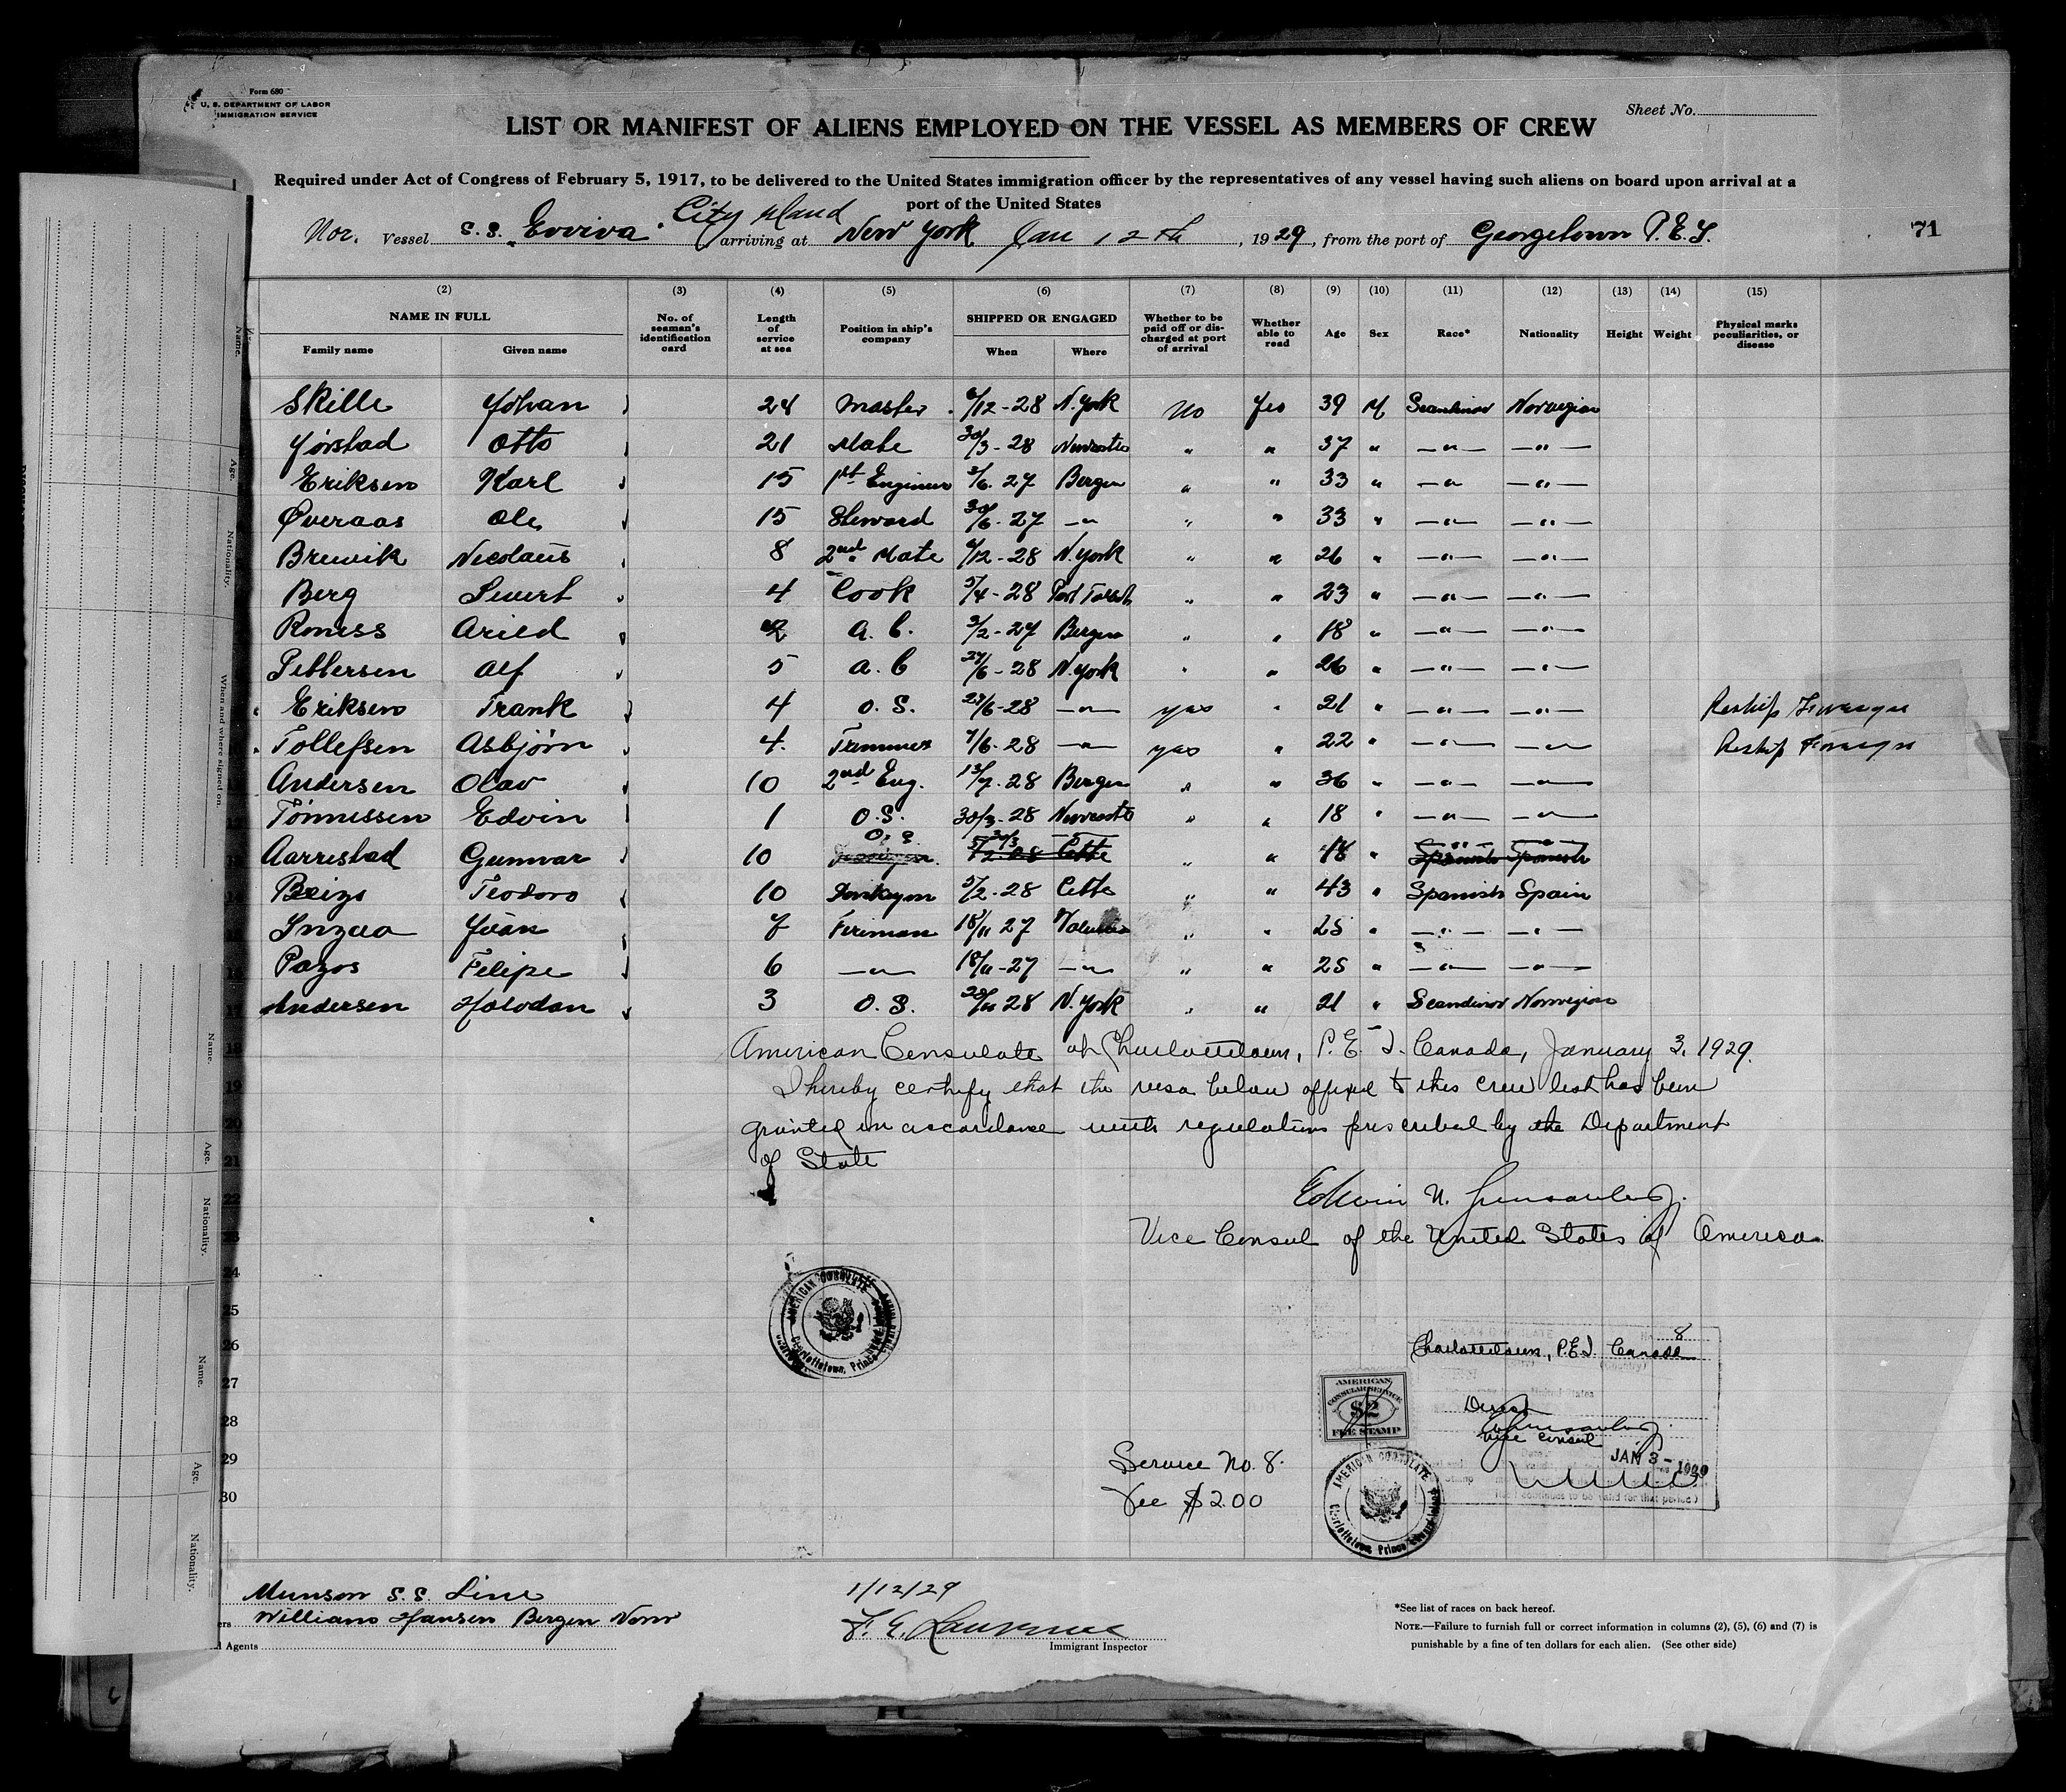 Form 680
U. S. DEPARTMENT OF LABOR
IMMIGRATION SERVICE
Sheet No.
LIST OR MANIFEST OF ALIENS EMPLOYED ON THE VESSEL AS MEMBERS OF CREW
Required under Act of Congress of February 5, 1917, to be delivered to the United States immigration officer by the representatives of any vessel having such aliens on board upon arrival at a
port of the United States
City Island
Nor. Vessel S.S. "Evviva" arriving at New York Jan 12th, 1929, from the port of Georgetown P.E.I.
71
(2) (3) (4) (5) (6) (7) (8) (9) (10) (11) (12) (13) (14) (15)
NAME IN FULL No. of seaman's identification card Length of service at sea Position in ship's company SHIPPED OR ENGAGED Whether to be paid off or discharged at port of arrival Whether able to read Age Sex Race* Nationality Height Weight Physical marks peculiarities, or disease
Family name Given name When Where
Skille Johan 24 Master 6/12-28 N.York No Yes 39 M Scandinav Norwegian
Jørstad Otto 21 Mate 30/3-28 Newcastle " " 37 " —"— —"—
Eriksen Karl 15 1st Engineer 3/6-27 Bergen " " 33 " —"— —"—
Øveraas Ole 15 Steward 30/6-27 —"— " " 33 " —"— —"—
Brewik Nicolaus 8 2nd Mate 6/12-28 N.York " " 26 " —"— —"—
Berg Sivert 4 Cook 5/4-28 Port Talbot " " 23 " —"— —"—
Roness Arild A.B. 3/2-27 Bergen " " 18 " —"— —"—
Pettersen Alf 5 A.B 27/6-28 N.York " " 26 " —"— —"—
Eriksen Frank 4 O.S. 27/6-28 —"— yes " 21 " —"— —"— Reship Foreign
Tollefsen Asbjørn 4 Trimmer 7/6-28 —"— yes " 22 " —"— —"— Reship Foreign
Andersen Olav 10 2nd Eng. 13/7-28 Bergen " " 36 " —"— —"—
Tönnessen Edvin 1 O.S. 30/3-28 Newcastle " " 18 " —"— —"—
Aarrestad Gunnar 10 O.S. 30/3 —"— " " 18 " —"— —"—
5/2-28 Cette Spanish Spanish
Beizo Teodoro 10 Donkeyman 5/2-28 Cette " " 43 " Spanish Spain
Juan 7 Fireman 18/11 27 " " 25 " —"— —"—
Pazos Felipe 6 —"— 18/11-27 —"— " " 25 " —"— —"—
17 Andersen Halvdan 3 O.S. 28/11 28 N.York " " 21 " Scandinav Norwegian
18 American Consulate at Charlottetown, P.E.I. Canada, January 3, 1929.
19 I hereby certify that the visa below affixed to this crew list has been
20 granted in accordance with regulations prescribed by the Department
21 of State
22 Edwin N.
23 Vice Consul of the United States of America
24
25
26
27
28
29
30
AMERICAN CONSULATE
Charlottetown, Prince Edward Island
8
Charlottetown, P.E.I. Canada
AMERICAN
CONSULAR SERVICE
$2
FEE STAMP
Vice Consul
JAN 3 - 1929
continues to be valid for that period)
Service No. 8.
Fee $2.00
AMERICAN CONSULATE
Charlottetown, Prince Edward Island
Munson S.S. Line
Williams Hansen Bergen Norw
Agents
1/12/29
F. E. Lawrence
Immigrant Inspector
*See list of races on back hereof.
NOTE.—Failure to furnish full or correct information in columns (2), (5), (6) and (7) is
punishable by a fine of ten dollars for each alien. (See other side)
Name.
Age.
Nationality.
When and where signed on
Name.
Age.
Nationality.
Name.
Age.
Nationality.